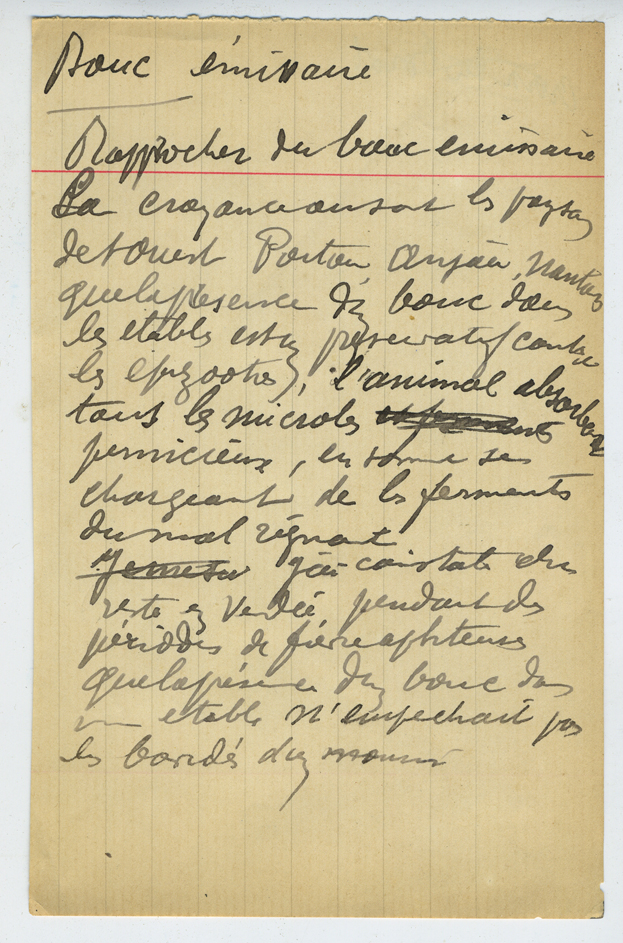 Bouc émissaire
Rapprocher du bouc emissaire
La croyance ausont les paysans
de l'ouest Poitou, Anjou, Nantais
que la présence d'un bouc dans
les etables est un préservatif contre
les épizooties, l'animal absorbant
tous les microbes
pernicieux, en somme se
chargeant de les ferments
du mal régnant
j'ai constaté du
reste en Vendée pendant des
périodes de fièvre aphteuse
que la présence d'un bouc dans
une etable n'empechait pas
les bovidés d'y mourir